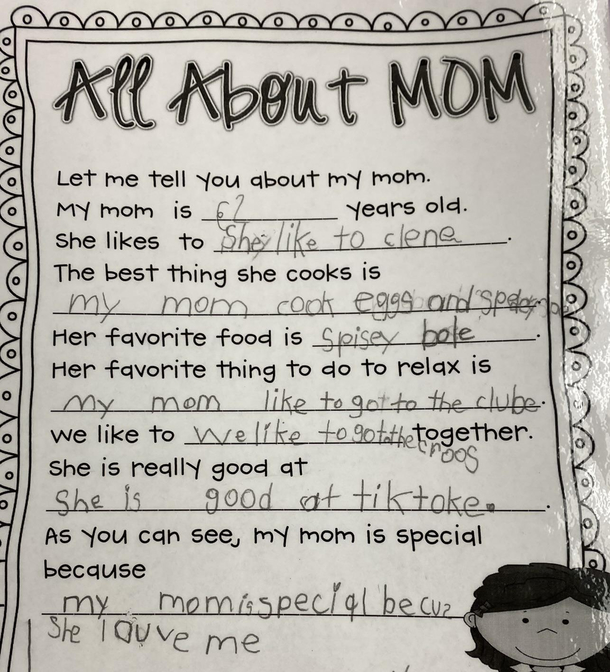 All About MOM
Let me tell you about my mom.
My mom is 62 years old.
She likes to She like to clene.
The best thing she cooks is
my mom cook eggs and
Her favorite food is Spisey bole.
Her favorite thing to do to relax is
My mom like to got to the clube.
We like to We like to got the together.
croos
She is really good at
She is good at tiktoke.
As you can see, my mom is special
because
my mom is special becuz
She louve me